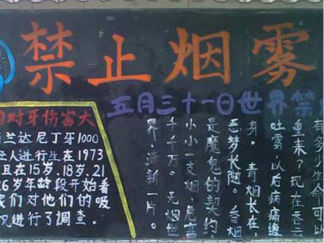 禁止烟雾
五月三十一日世界禁
对牙伤害大
兰达尼丁牙1000
人进行生在1973
且在15岁、18岁、21
26岁年龄段开始着
我们对他们的吸
况进行了调查。
有多少生命可以
重来?现在吞云
吐雾,以后病痛缠
身。青烟长在,
恶梦长随。香烟
是魔鬼的契约
小小一支烟,危害
千千万。无烟世
界,清新一片。